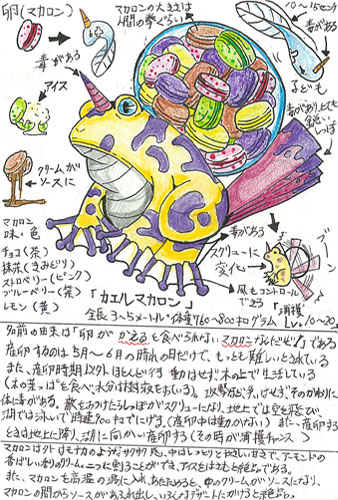 卵(マカロン)
マカロンの大きさは
人間の拳ぐらい
10〜15センチ
毒がある
子ども
毒がある
アイス
クリームが
ソースに
マカロン
味・色
チョコ(茶)
抹茶(きみどり)
ストロベリー(ピンク)
ブルーベリー(紫)
レモン(黄)
毒があり、とても
しっぽ
毒がある
スクリューに
変化
ブーン
風もコントロール
できる
「カエルマカロン」
全長3〜5メートル 体重760〜800キログラム
「捕獲
Lv.10〜20」
名前の由来は「卵がかえると食べられないマカロンなんだぜ!」である
産卵するのは5月〜6月の時期の1日だけで、もっとも難しいとされている
また、産卵時期以外ほとんど行動はせず木の上で生活している
(木の葉っぱを食べ水分は
体に毒がある。敵をみつけたらしっぽがスクリューになり、地上では空を飛び
湖では泳いで時速200キロでにげる。(産卵中は動かない)また、産卵する
ときは地上に降り、湖に向かい産卵する(その時が捕獲チャンス)
マカロンは外はモナカのようなサクサク
香ばしい香りのクリーム、二つに割ることができ、アイスをはさむと絶品である。
また、マカロンを高温の湯に入れあたためると、中のクリームがソースになり、
マカロンの間からソースがあふれ出し、いろんなデザートにかけると絶品である